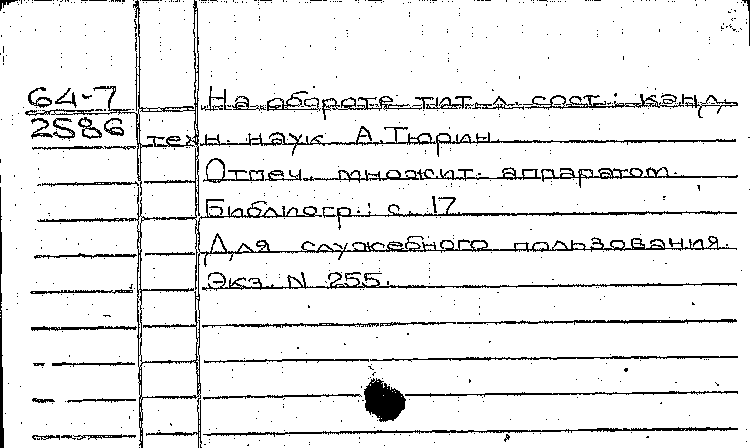 64-7
2586
На обороте тит. л. сост.: канд.
техн. наук А.Тюрин
Отпеч. множит. аппаратом.
Библиогр.: с. 17
Для служебного пользования.
Экз. N 255.